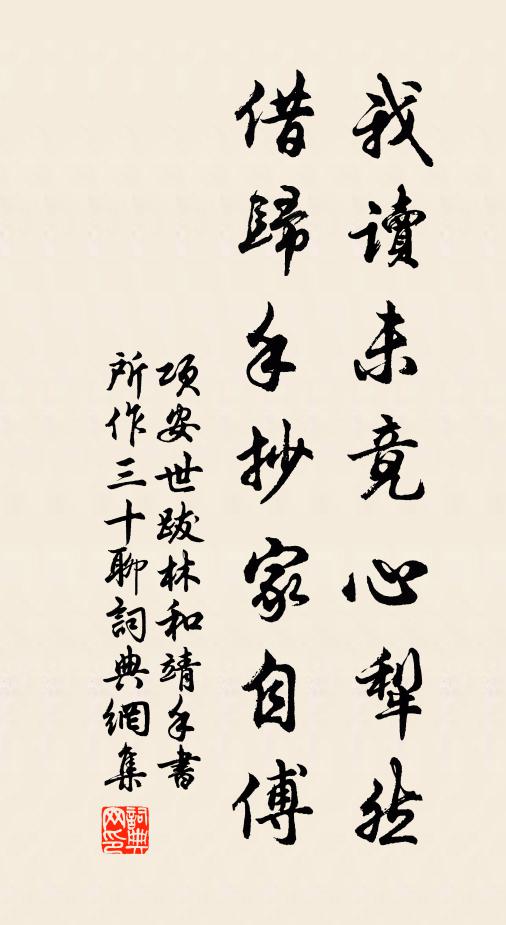 我讀未竟心犁然
借歸手抄家自傅
項安世跋林和靖手書
所作三十聊詞典網集
詞典網印